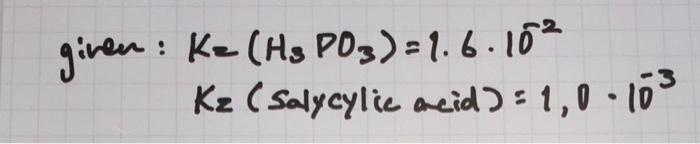 given : Kz (H3 PO3) = 1.6 . 10^-2
Kz (Salycylic acid) = 1,0 · 10^-3